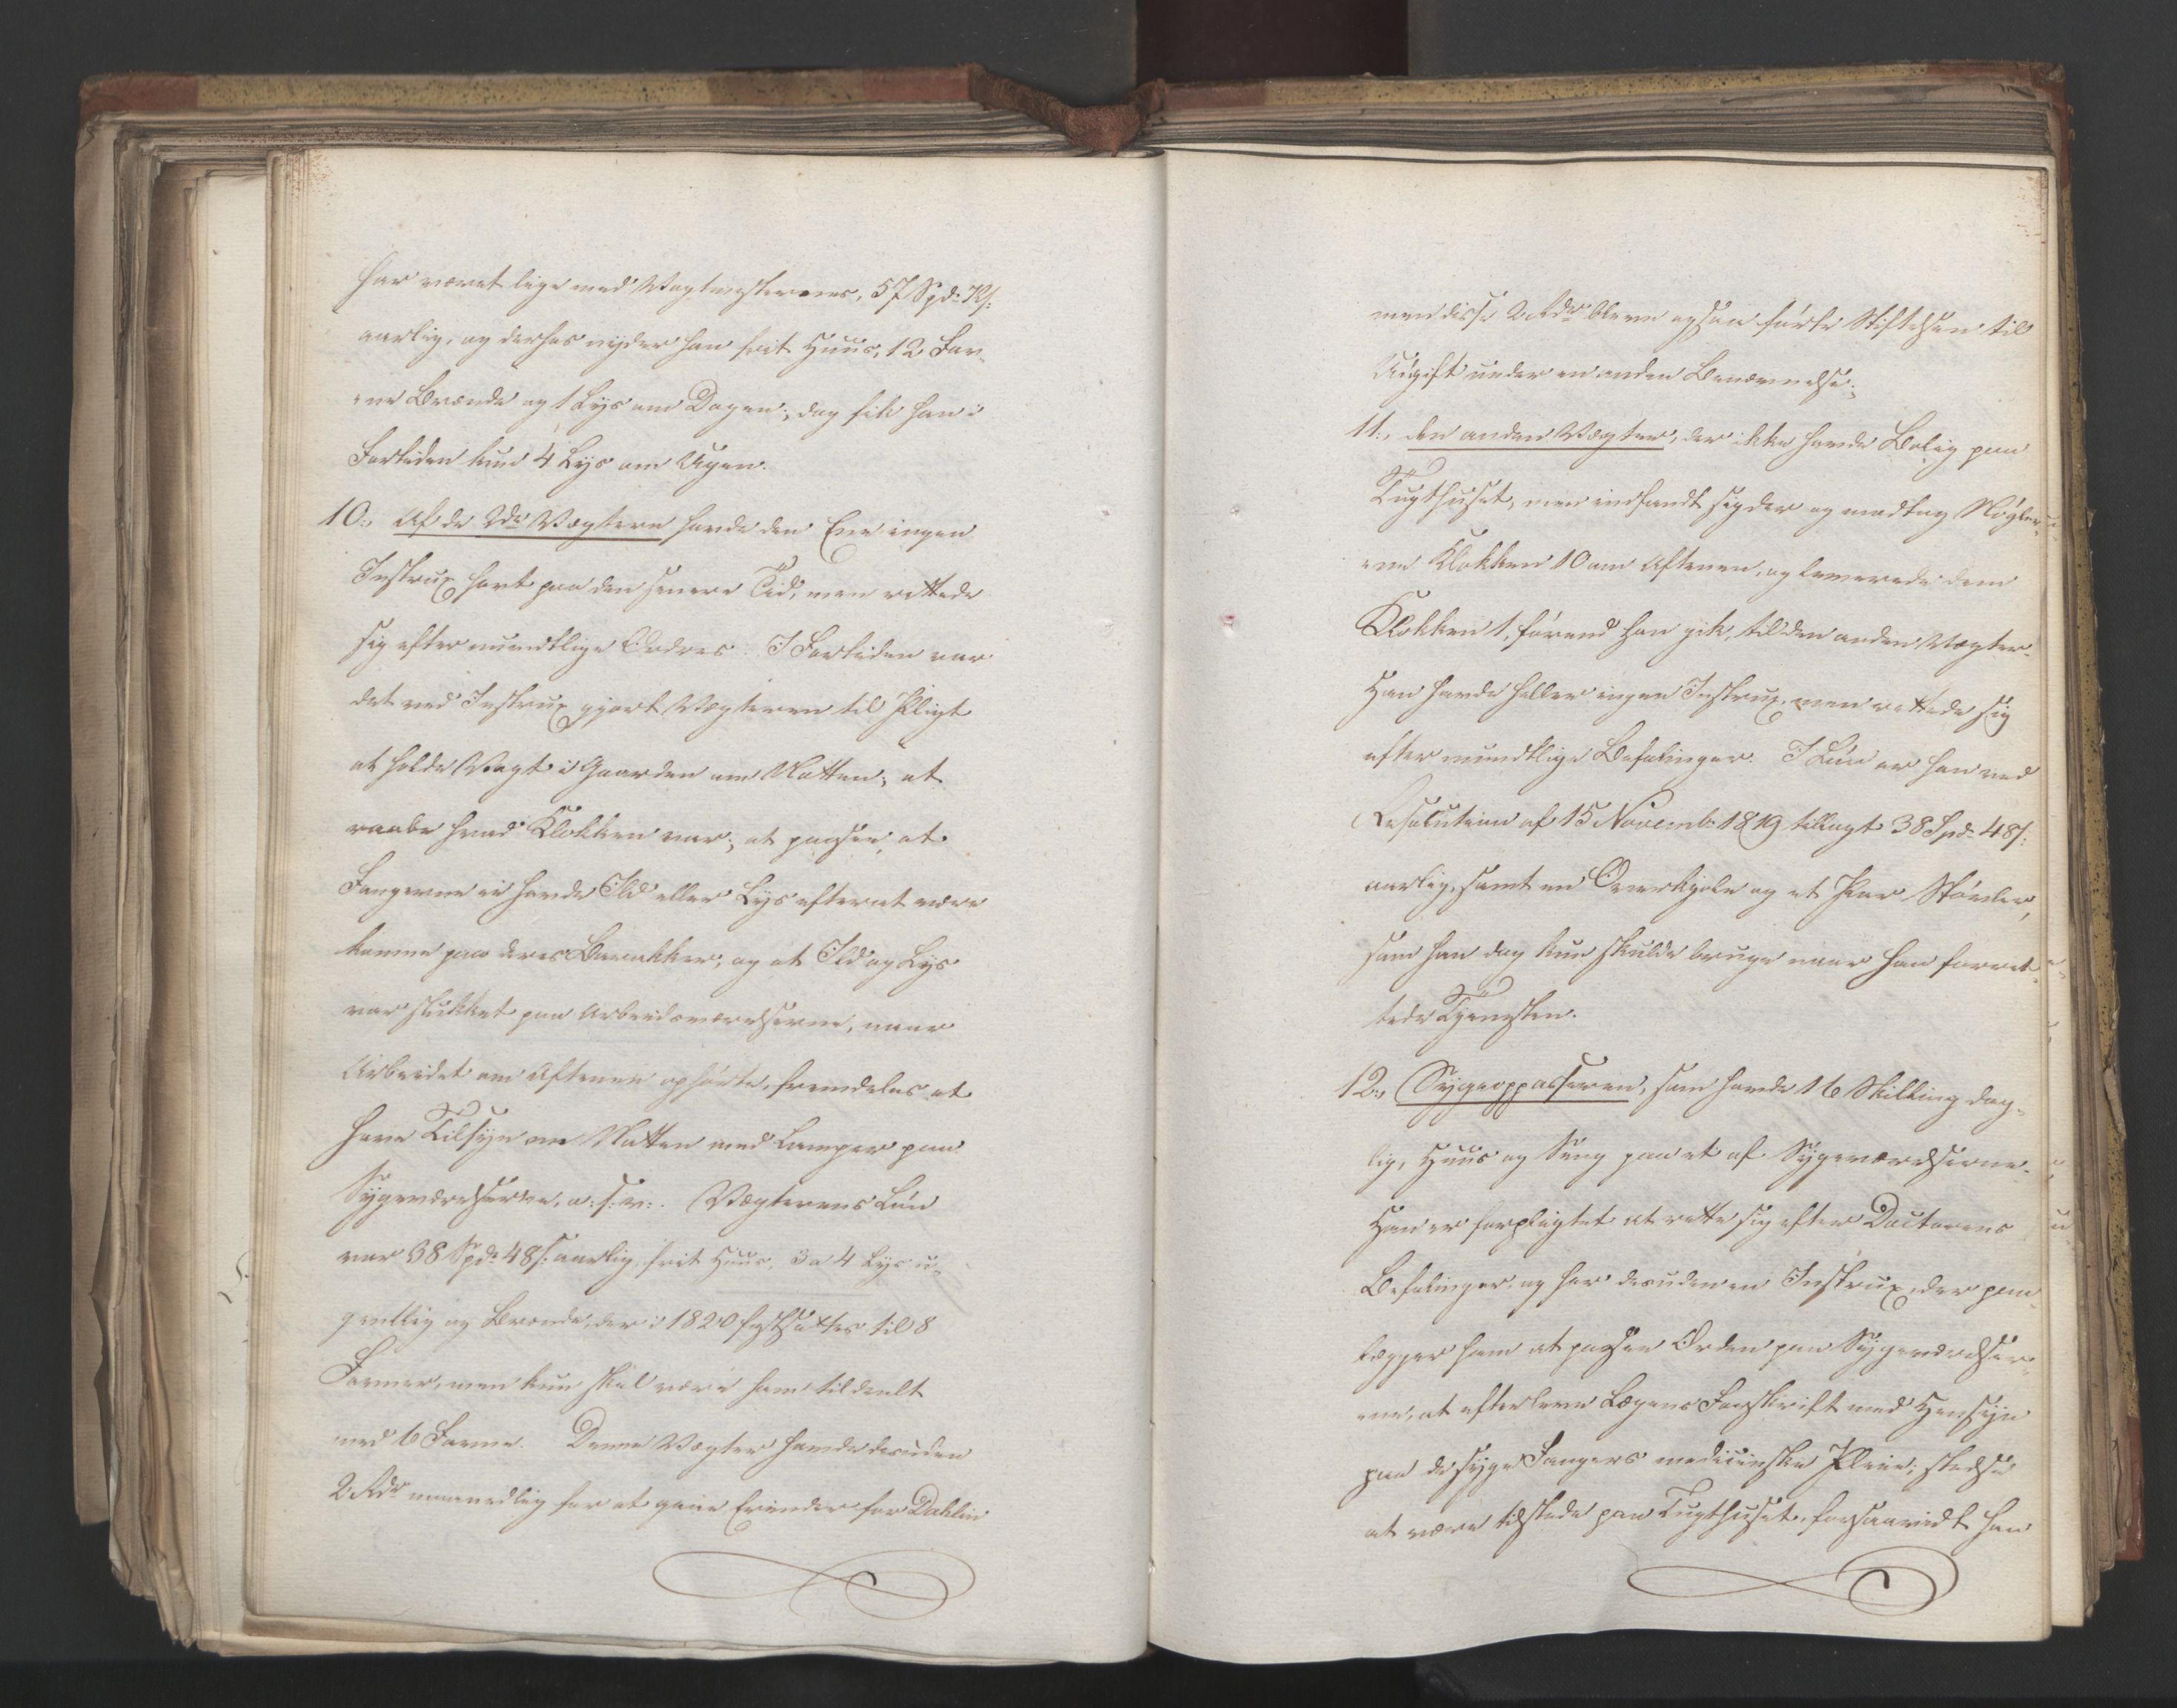 har været lige med Vagtmesterens, 57 Spd: 72/:
aarlig, og derhos nyder han frit Huus, 12 Fav-
ne Brænde og 1 Lys om Dagen; dog fik han i
Fortiden kun 4 Lys om Ugen.
10:, Af de 2de Vægtere havde den Ene ingen
Instrux havt paa den senere Tid, men rettede
sig efter mundtlige Ordres. I Fortiden var
det ved Instrux gjort Vægteren til Pligt
at holde Vagt i Gaarden om Natten; at
raabe hvad Klokken var; at paasee, at
Fangerne ei havde Ild eller Lys efterat være
komne paa deres Barakker, og at Ild og Lys
var slukket paa Arbeidsværelserne, naar
Arbeidet om Aftenen ophørte, fremdeles at
have Tilsyn om Natten med Lamper paa
Sygeværelserne, o: s: v:. Vægterens Løn
var 38 Spd: 48/: aarlig, frit Huus, 3 a 4 Lys u-
gentlig og Brænde, der i 1820 fastsattes til 8
Favner, men kun skal være ham tildeelt
med 6 Favne. Denne Vægter havde desuden
2 Rdr maanedlig for at gaae Erinder for Dahlin
men disse 2 Rdr bleve ogsaa førte Stiftelsen til
Udgift under en anden Benævnelse.
11:, den anden Vægter, der ikke havde Bolig paa
Tugthuset, men indfandt sig der og modtog Nøgler-
ne Klokken 10 om Aftenen, og leverede dem
Klokken 1, førend han gik, til den anden Vægter.
Han havde heller ingen Instrux, men rettede sig
efter mundtlige Befalinger. I Løn er han ved
Resolution af 15 Novemb: 1819 tillagt 38 Spd: 48/:
aarlig, samt en Overkjole og et Par Støvler,
som han dog kun skulde bruge naar han forret-
tede Tjenesten.
12:, Sygeoppasseren, som havde 16 Skilling dag-
lig, Huus og Seng paa et af Sygeværelserne.
Han er forpligtet at rette sig efter Doctorens
Befalinger og har desuden en Instrux, der paa-
lægger ham at paasee Orden paa Sygeværelser-
ne, at efterleve Lægens Forskrift med Hensyn
paa de syge Fangers medicinske Pleie; stedse
at være tilstede paa Tugthuset, forsaavidt han